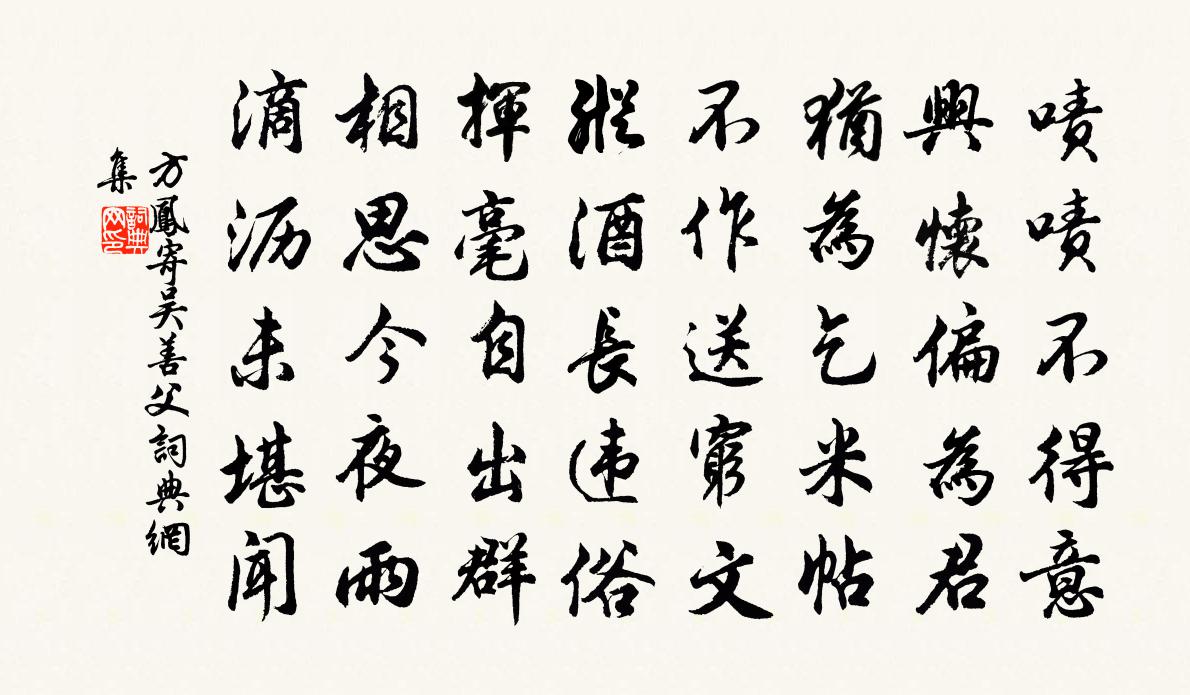 嘖嘖不得意
興懷偏為君
猶為乞米帖
不作送窮文
縱酒長违俗
揮毫自出群
相思今夜雨
滴沥未堪闻
方鳳寄吴善父詞典網
集
詞典
网印